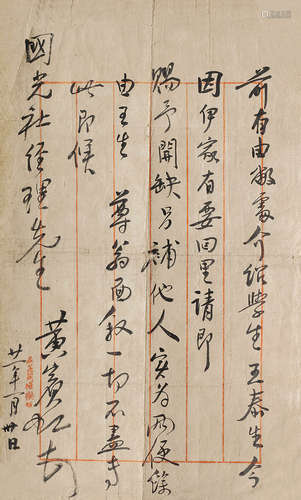 前有由敝處介紹學生王泰生今
因伊家有要回里請即
賜予開缺另補他人實為兩便餘
由王生 尊翁面敘一切不盡專
此即候
國光社經理先生
黃賓虹
廿一年一月卅日